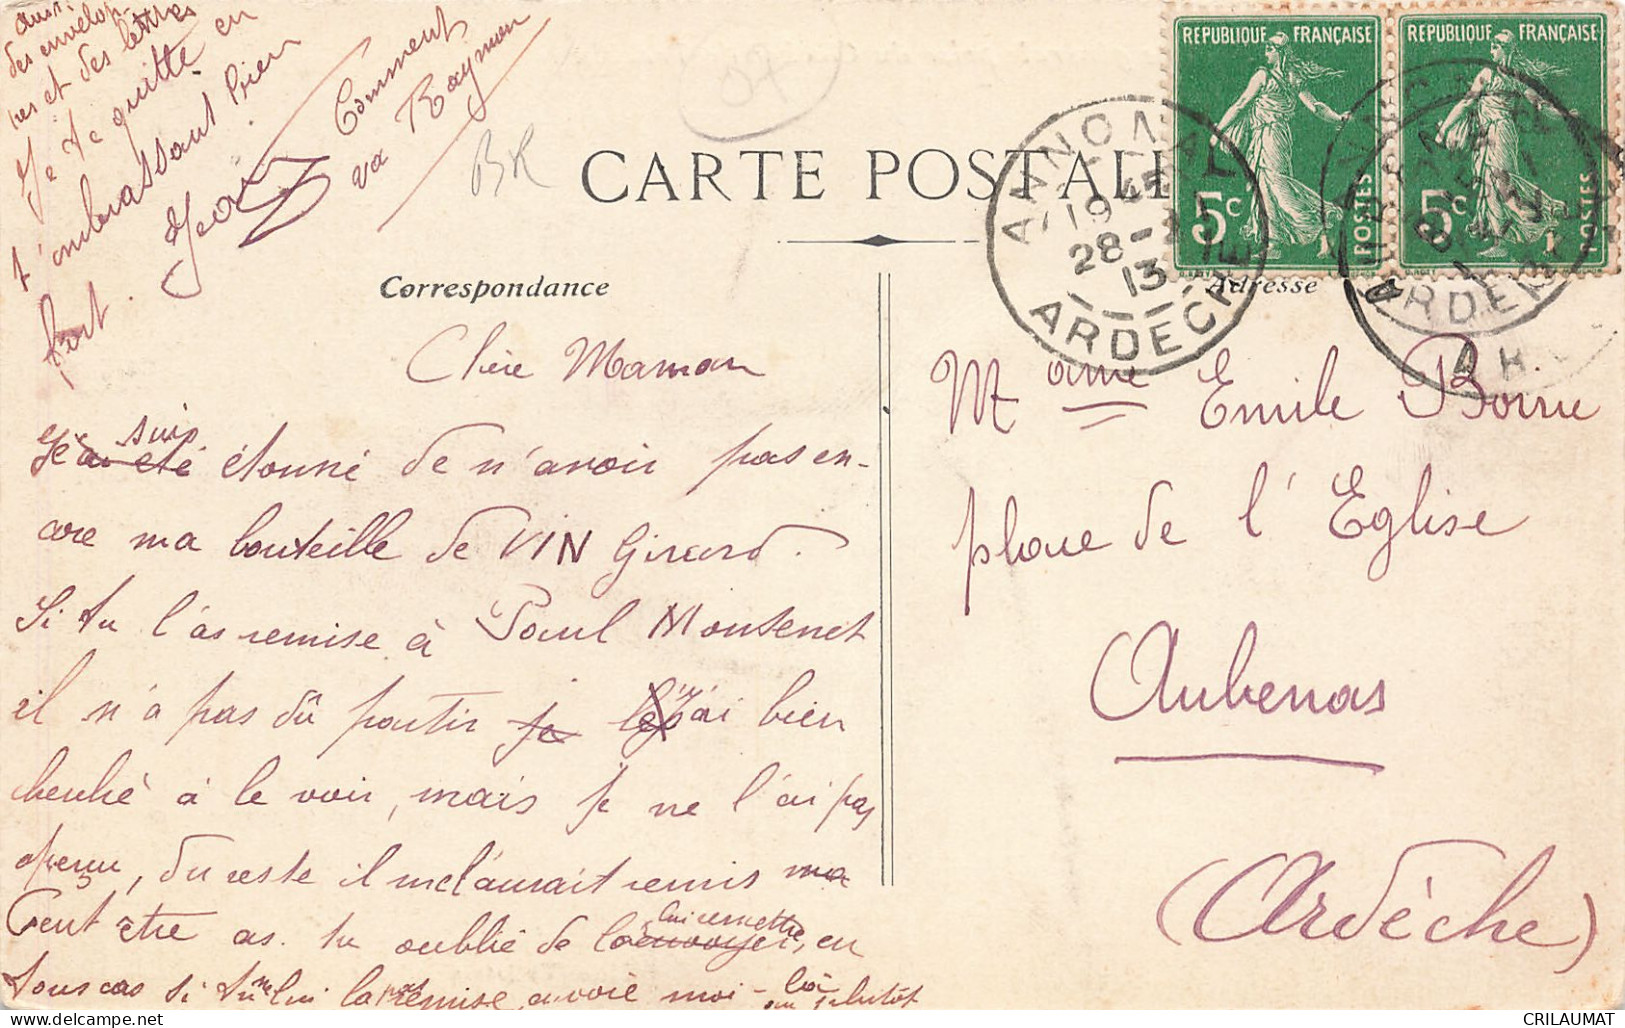 CARTE POSTALE
Correspondance
Adresse
RÉPUBLIQUE FRANÇAISE
5c
POSTES
RÉPUBLIQUE FRANÇAISE
5c
POSTES
ANNONAY
19 45
28 - 2
13
ARDECHE
ARDECHE
BR
Chère Maman
Je ai été suis étonné de n'avoir pas en-
core ma bouteille de VIN Girard.
Si tu l'as remise à Paul Montenet
il n'a pas dû partir je j'ai bien
cherché à le voir, mais je ne l'ai pas
aperçu, du reste il me l'aurait remis ma
Peut être as-tu oublié de la envoyer, lui remettre, en
tous cas si tu ne lui la pas remise, envoie moi-la
ou plutôt
aussi
des envelop-
pes et des lettres
Je te quitte en
t'embrassant bien
fort.
Jean
Comment
va Raymon
Mame Emile Borne
place de l'Eglise
Aubenas
(Ardèche)
CRILAUMAT